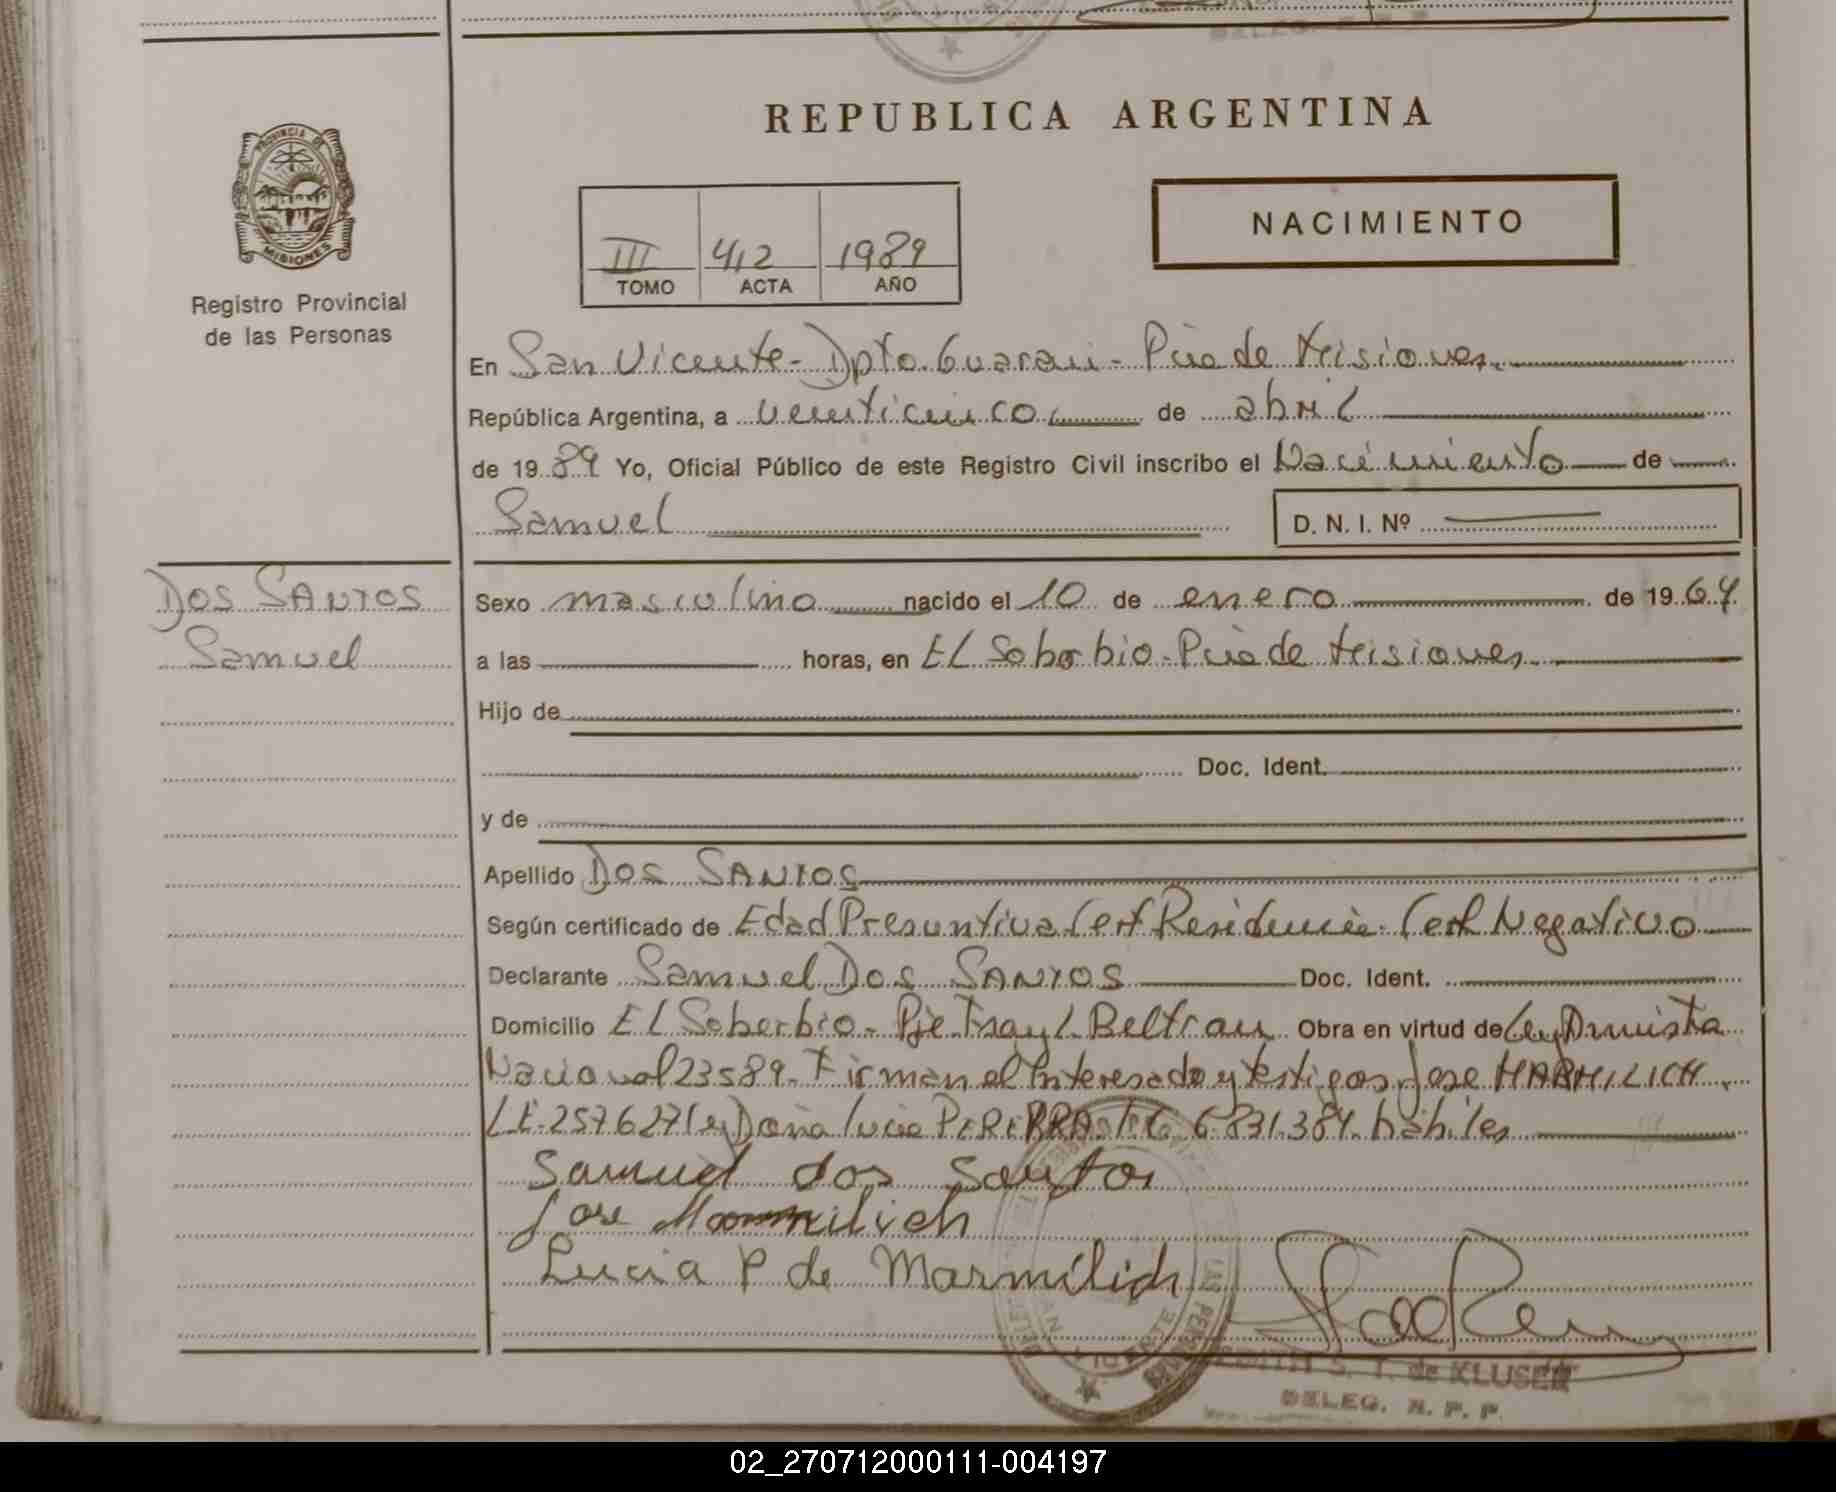 REPUBLICA ARGENTINA
PROVINCIA DE MISIONES
Registro Provincial
de las Personas
III 412 1989
TOMO ACTA AÑO
NACIMIENTO
En San Vicente - Dpto. Guarani - Pcia de Misiones
República Argentina, a veinticinco de abril
de 1989 Yo, Oficial Público de este Registro Civil inscribo el Nacimiento de
Samuel D. N. I. Nº
DOS SANTOS
Samuel
Sexo masculino nacido el 10 de enero de 1964
a las horas, en EL Soberbio - Pcia de Misiones
Hijo de
Doc. Ident.
y de
Apellido DOS SANTOS
Según certificado de Edad Presuntiva Cert Residencia. Cert Negativo
Declarante Samuel DOS SANTOS Doc. Ident.
Domicilio EL Soberbio - Pje Fray L. Beltran Obra en virtud de Ley Amnistia
Nacional 23589. Firman el Interesado y testigos Jose MARMILICH
LE. 2576271 y Doña Lucia PEREIRA. 6.831.384. hábiles
Samuel dos Santos
Jose Marmilich
Lucia P de Marmilich
S. T. de KLUSER
DELEG. R. P. P.
02_270712000111-004197